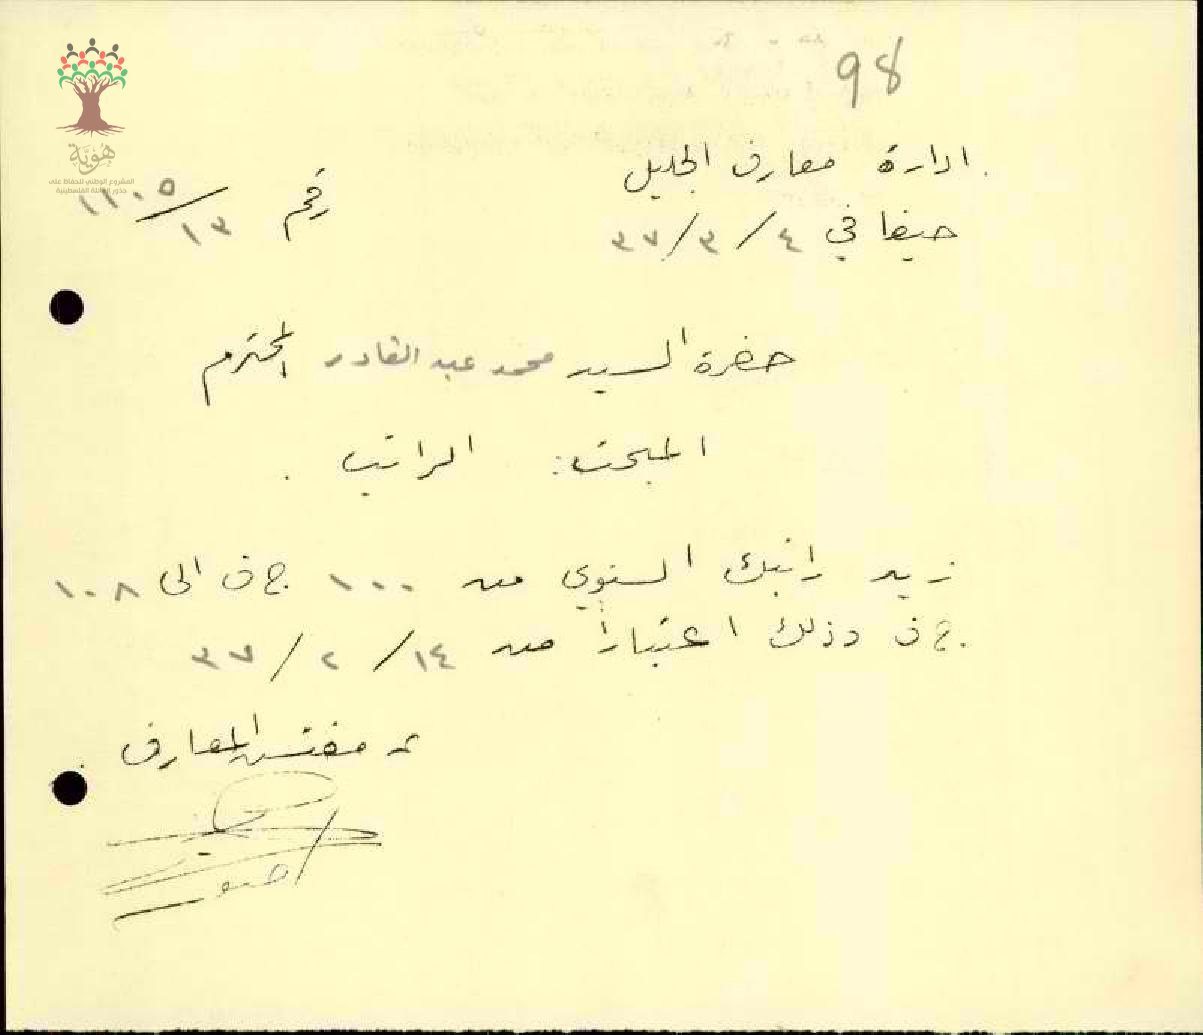 98
هُوِيَّة
المشروع الوطني للحفاظ على
جذور العائلة الفلسطينية
ادارة معارف الجليل
رقم ١٣/١١٠٥
حيفا في ٤/٣/٣٧
حضرة السيد محمد عبد القادر المحترم
المبحث: الراتب.
زيد راتبك السنوي من ١٠٠ ج ف الى ١٠٨
ج ف وذلك اعتباراً من ١٤/٢/٣٧
مفتش المعارف